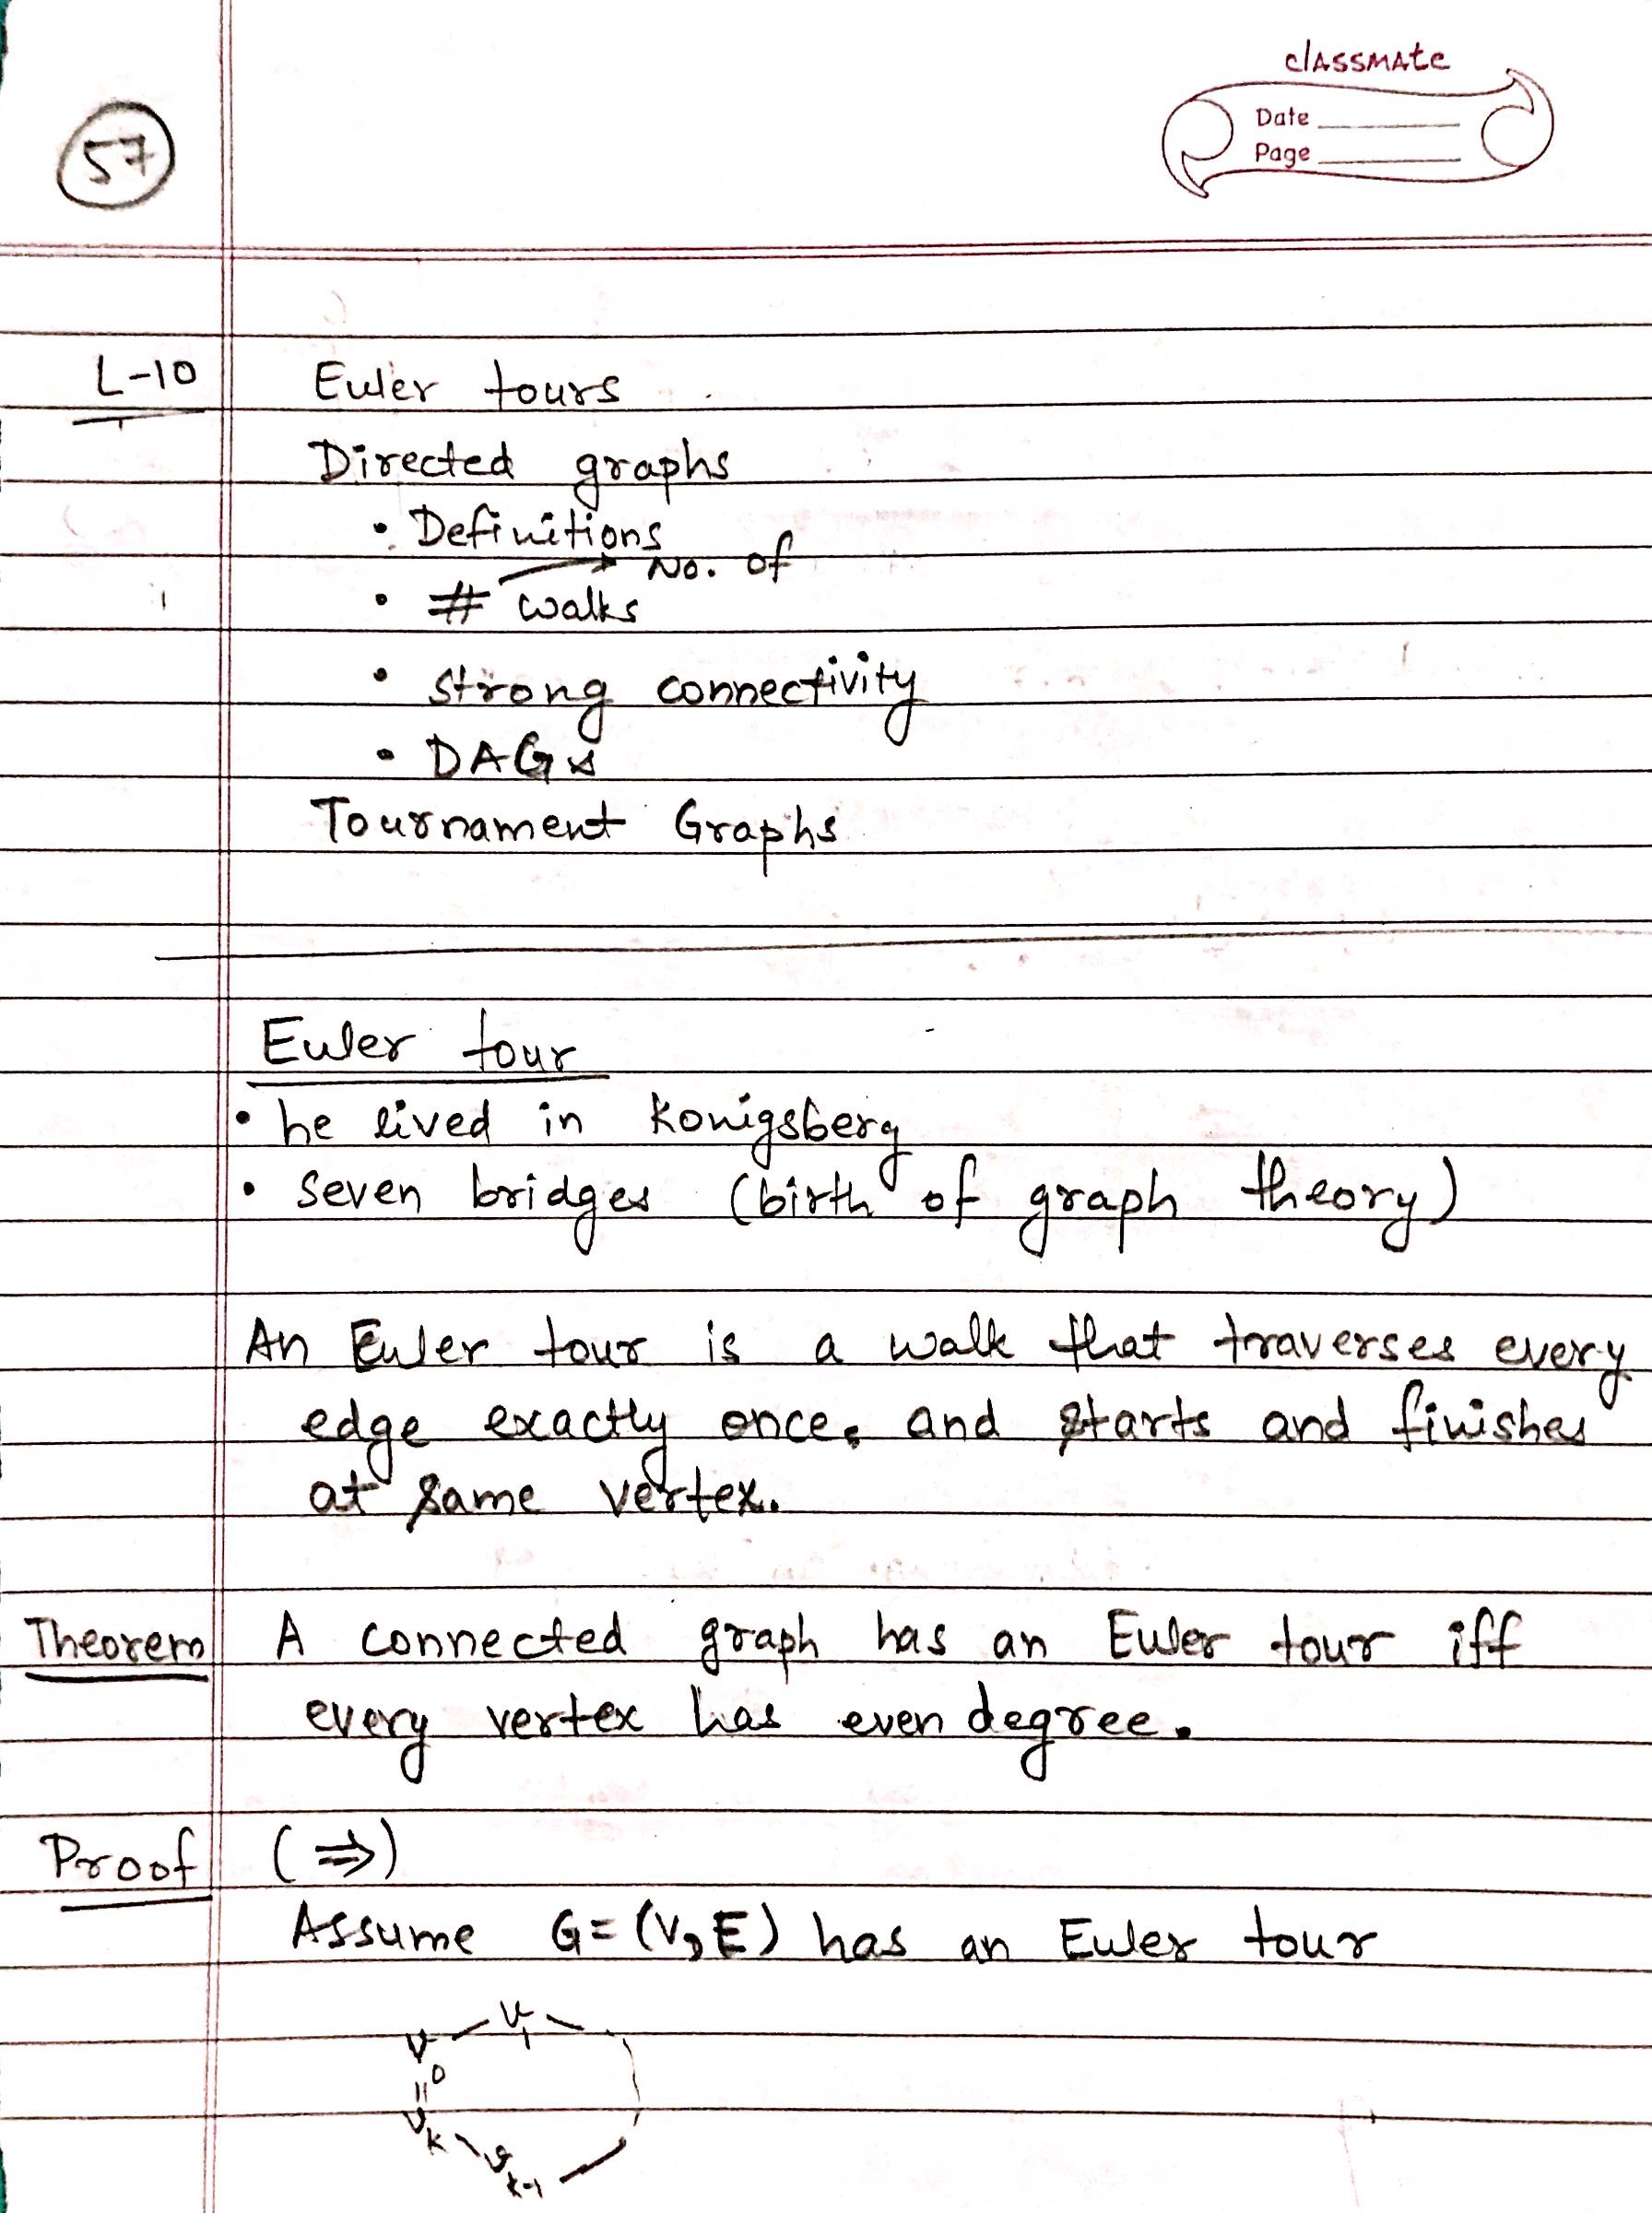 classmate
Date
Page
57
L-10 Euler tours
Directed graphs
• Definitions
No. of
• # walks
• strong connectivity
• DAGs
Tournament Graphs
Euler tour
• he lived in Konigsberg
• seven bridges (birth of graph theory)
An Euler tour is a walk that traverses every
edge exactly once, and starts and finishes
at same vertex.
Theorem A connected graph has an Euler tour iff
every vertex has even degree.
Proof (⇒)
Assume G=(V,E) has an Euler tour
V₀ — V₁ —
||
Vₖ — Vₖ₋₁ —